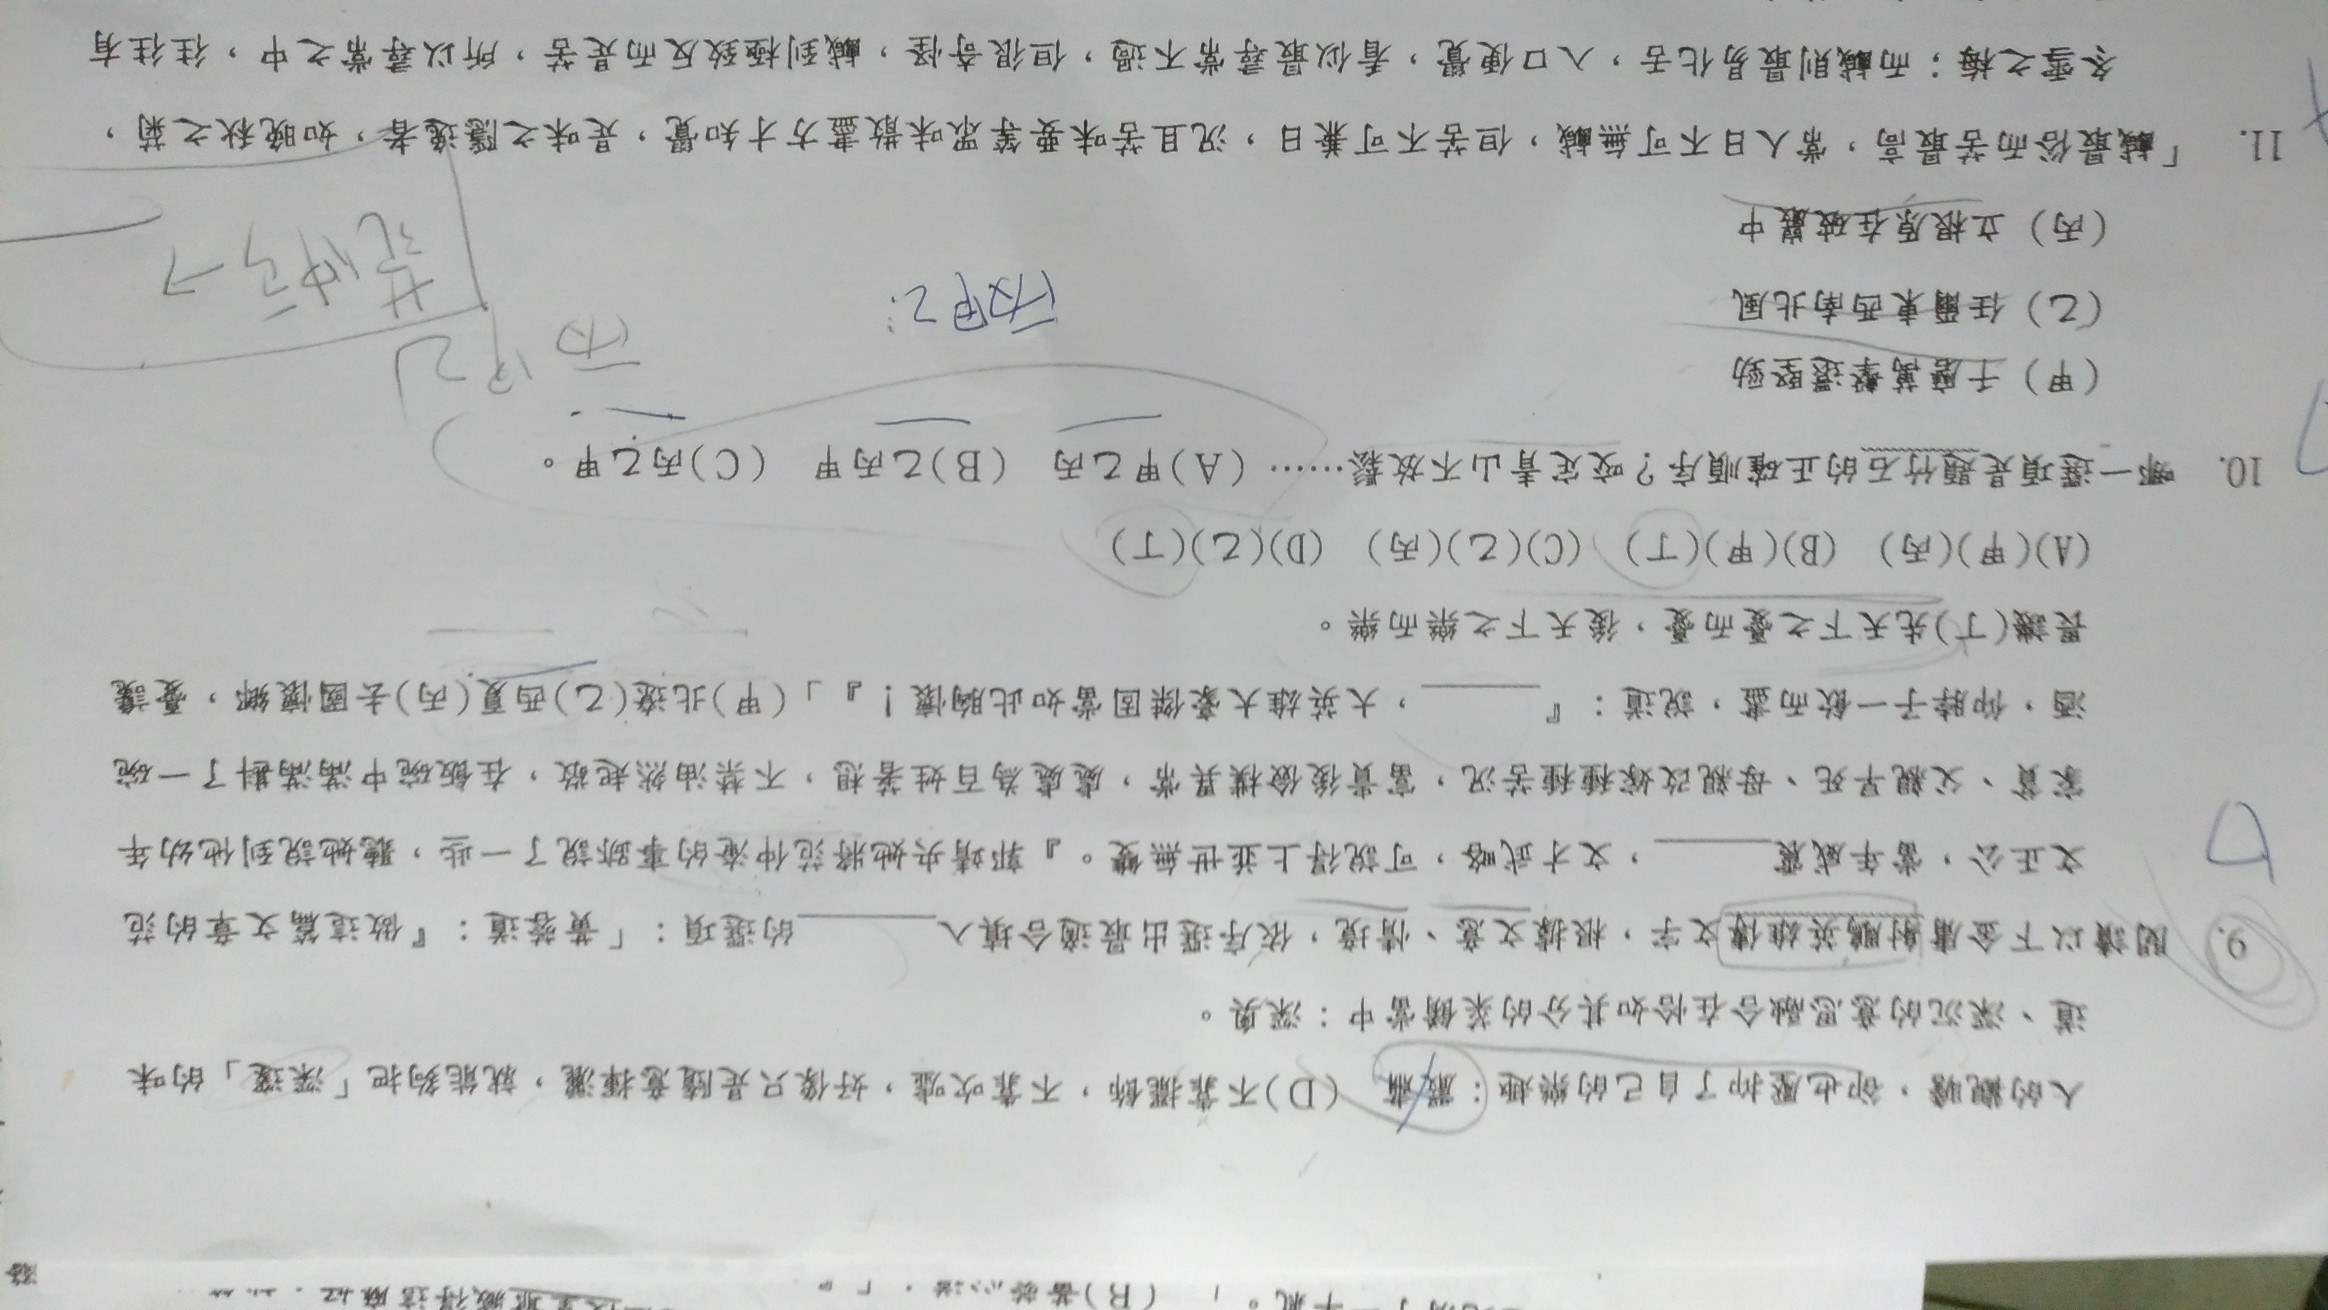 人的觀瞻，卻也壓抑了自己的樂趣：嚴肅　(D)不靠擺飾，不靠吹噓，好像只是隨意揮灑，就能夠把「深邃」的味
道、深沉的意思融合在恰如其分的菜餚當中：深奧。
9. 閱讀以下金庸射鵰英雄傳文字，根據文意、情境，依序選出最適合填入______的選項：「黃蓉道：『做這篇文章的范
文正公，當年威震______，文才武略，可說得上並世無雙。』郭靖央她將范仲淹的事跡說了一些，聽她說到他幼年
家貧、父親早死、母親改嫁種種苦況，富貴後儉樸異常，處處為百姓著想，不禁油然起敬，在飯碗中滿滿斟了一碗
酒，仰脖子一飲而盡，說道：『______，大英雄大豪傑固當如此胸懷！』」(甲)北遼(乙)西夏(丙)去國懷鄉，憂讒
畏譏(丁)先天下之憂而憂，後天下之樂而樂。
(A)(甲)(丙)　(B)(甲)(丁)　(C)(乙)(丙)　(D)(乙)(丁)
10. 哪一選項是題竹石的正確順序？咬定青山不放鬆……　(A)甲乙丙　(B)乙丙甲　(C)丙乙甲。
(甲) 千磨萬擊還堅勁
(乙) 任爾東西南北風
(丙) 立根原在破巖中
丙甲乙
丙甲乙
11. 「鹹最俗而苦最高，常人日不可無鹹，但苦不可兼日，況且苦味要等眾味散盡方才知覺，是味之隱逸者，如晚秋之菊，
冬雪之梅；而鹹則最易化舌，入口便覺，看似最尋常不過，但很奇怪，鹹到極致反而是苦，所以尋常之中，往往有